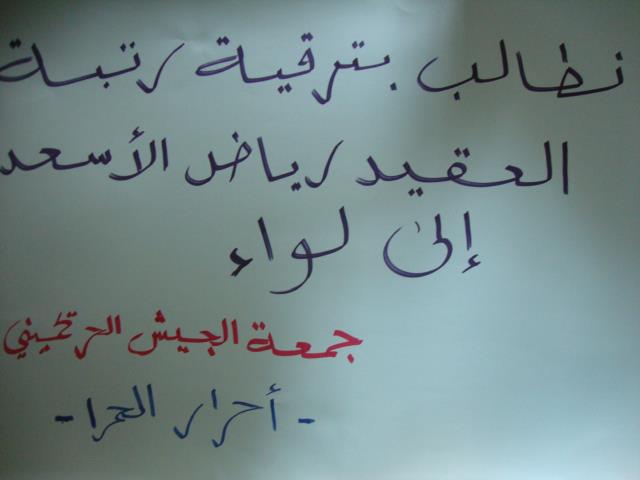 نطالب بترقية رتبة
العقيد رياض الأسعد
إلى لواء
جمعة الجيش الحر يحميني
- أحرار الحمرا -